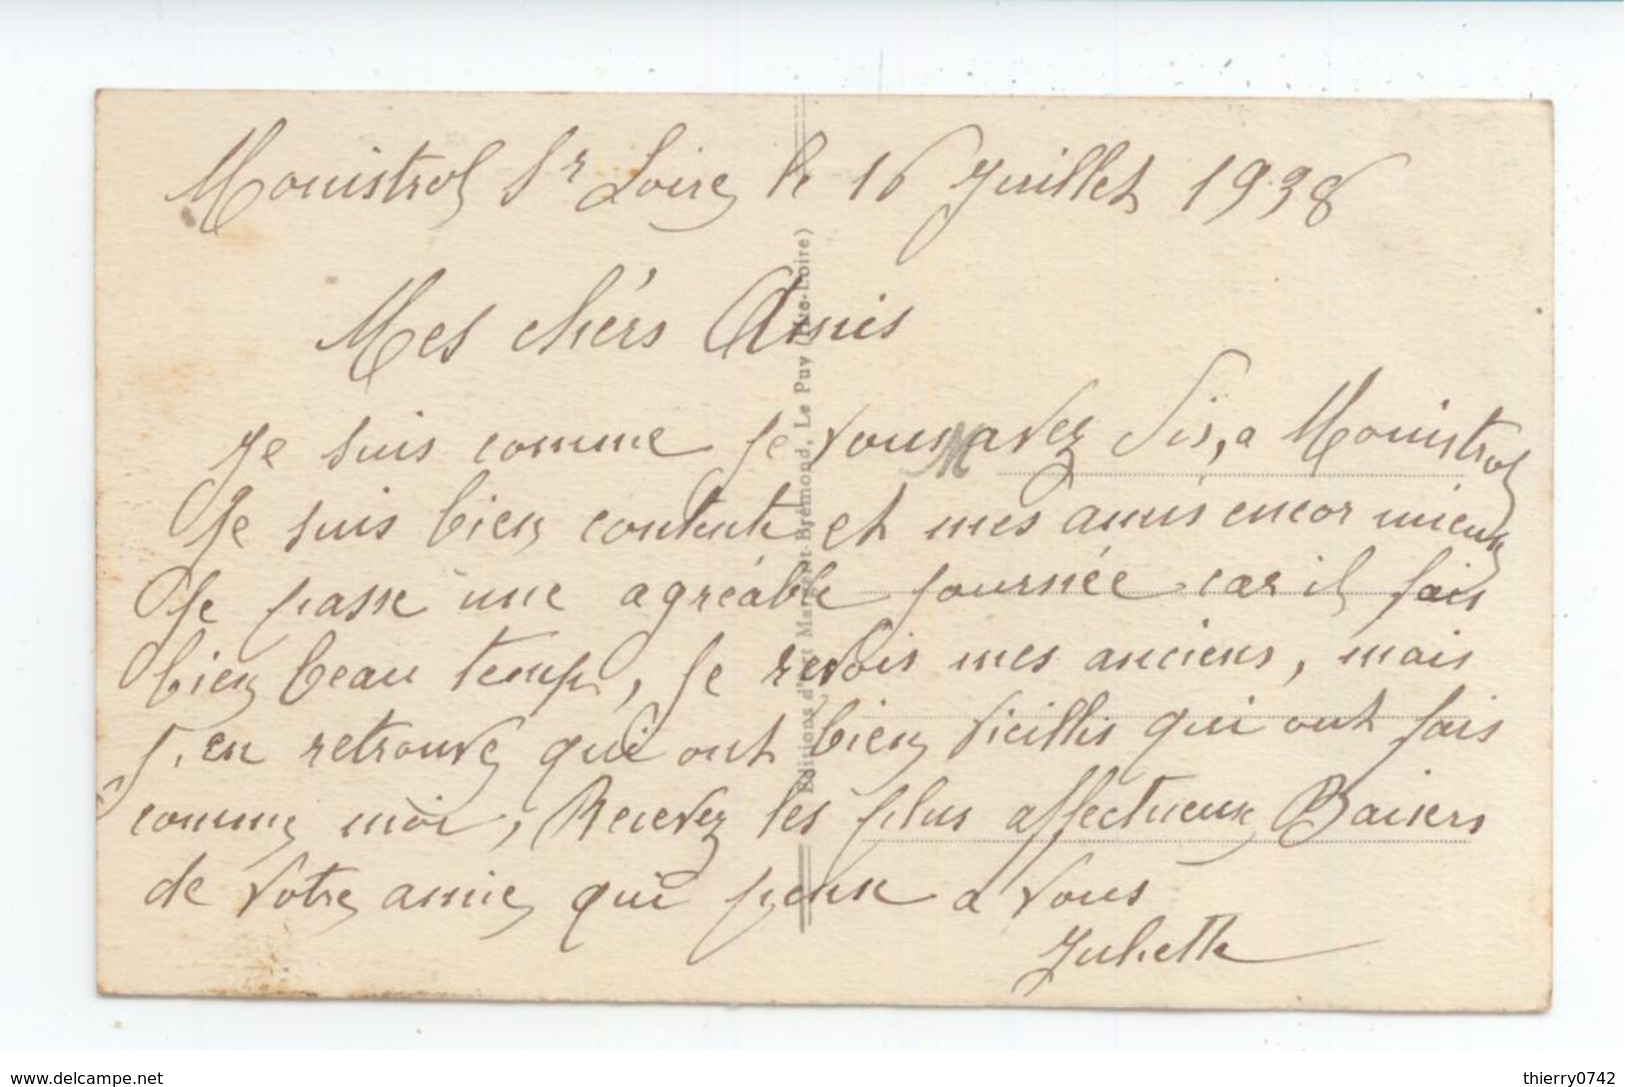 Monistrol Sr Loire le 16 Juillet 1938
Mes chérs Amis
Je suis comme je vous avez dis, a Monistrol
Je suis bien contente et mes amis encor mieux
Je passe une agréable journée car il fais
bien beau temps, Je revois mes anciens, mais
j'en retrouve qui ont bien vieillis qui ont fais
comme moi, Recevez les plus affectueux Baisers
de votre amie qui pense a vous
Juliette
M
Editions d'Art Margerit-Brémond, Le Puy (Hte-Loire)
www.delcampe.net
thierry0742